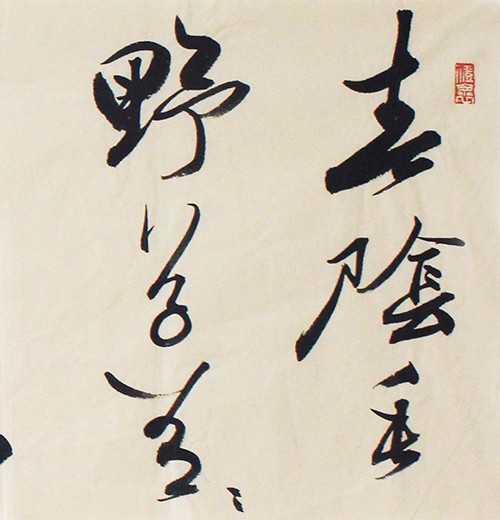 春陰垂
野草青〻